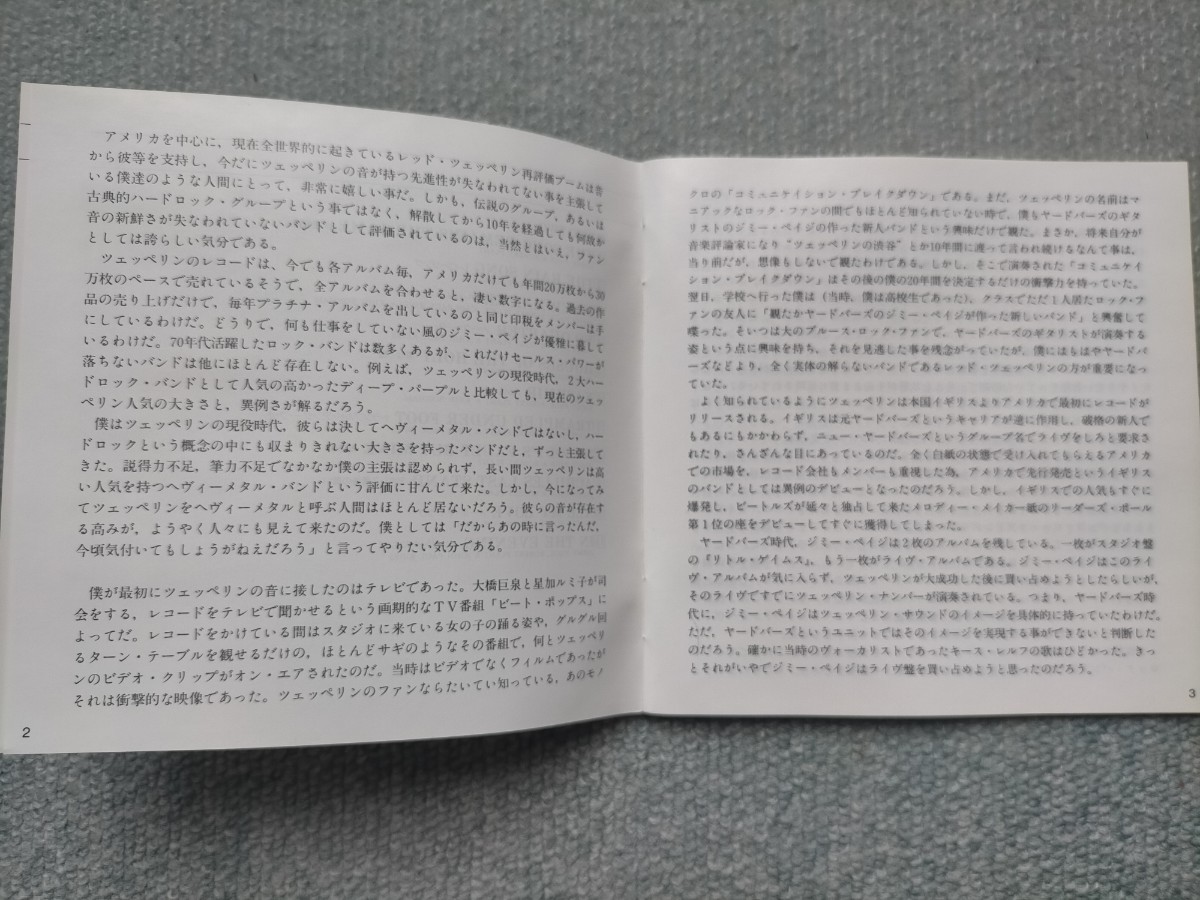 アメリカを中心に，現在全世界的に起きているレッド・ツェッペリン再評価ブームは昔
から彼等を支持し，今だにツェッペリンの音が持つ先進性が失なわれてない事を主張して
いる僕達のような人間にとって，非常に嬉しい事だ。しかも，伝説のグループ，あるいは
古典的ハードロック・グループという事ではなく，解散してから10年を経過しても何故か
音の新鮮さが失なわれていないバンドとして評価されているのは，当然とはいえ，ファン
としては誇らしい気分である。
ツェッペリンのレコードは，今でも各アルバム毎，アメリカだけでも年間20万枚から30
万枚のペースで売れているそうで，全アルバムを合わせると，凄い数字になる。過去の作
品の売り上げだけで，毎年プラチナ・アルバムを出しているのと同じ印税をメンバーは手
にしているわけだ。どうりで，何も仕事をしていない風のジミー・ペイジが優雅に暮して
いるわけだ。70年代活躍したロック・バンドは数多くあるが，これだけセールス・パワーが
落ちないバンドは他にほとんど存在しない。例えば，ツェッペリンの現役時代，2大ハー
ドロック・バンドとして人気の高かったディープ・パープルと比較しても，現在のツェッ
ペリン人気の大きさと，異例さが解るだろう。
僕はツェッペリンの現役時代，彼らは決してヘヴィーメタル・バンドではないし，ハー
ドロックという概念の中にも収まりきれない大きさを持ったバンドだと，ずっと主張して
きた。説得力不足，筆力不足でなかなか僕の主張は認められず，長い間ツェッペリンは高
い人気を持つヘヴィーメタル・バンドという評価に甘んじて来た。しかし，今になってみ
てツェッペリンをヘヴィーメタルと呼ぶ人間はほとんど居ないだろう。彼らの音が存在す
る高みが，ようやく人々にも見えて来たのだ。僕としては「だからあの時に言ったんだ，
今頃気付いてもしょうがねえだろう」と言ってやりたい気分である。
僕が最初にツェッペリンの音に接したのはテレビであった。大橋巨泉と星加ルミ子が司
会をする，レコードをテレビで聞かせるという画期的なTV番組「ビート・ポップス」に
よってだ。レコードをかけている間はスタジオに来ている女の子の踊る姿や，グルグル回
るターン・テーブルを観せるだけの，ほとんどサギのようなその番組で，何とツェッペリ
ンのビデオ・クリップがオン・エアされたのだ。当時はビデオでなくフィルムであったが
それは衝撃的な映像であった。ツェッペリンのファンならたいてい知っている，あのモノ
2
クロの「コミュニケイション・ブレイクダウン」である。まだ，ツェッペリンの名前はマ
ニアックなロック・ファンの間でもほとんど知られていない時で，僕もヤードバーズのギタ
リストのジミー・ペイジの作った新人バンドという興味だけで観た。まさか，将来自分が
音楽評論家になり“ツェッペリンの渋谷”とか10年間に渡って言われ続けるなんて事は，
当り前だが，想像もしないで観たわけである。しかし，そこで演奏された「コミュニケイ
ション・ブレイクダウン」はその後の僕の20年間を決定するだけの衝撃力を持っていた。
翌日，学校へ行った僕は（当時，僕は高校生であった），クラスでただ1人居たロック・フ
ァンの友人に「観たかヤードバーズのジミー・ペイジが作った新しいバンド」と興奮して
喋った。そいつは大のブルース・ロック・ファンで，ヤードバーズのギタリストが演奏する
姿という点に興味を持ち，それを見逃した事を残念がっていたが，僕にはもはやヤードバ
ーズなどより，全く実体の解らないバンドであるレッド・ツェッペリンの方が重要になっ
ていた。
よく知られているようにツェッペリンは本国イギリスよりアメリカで最初にレコードが
リリースされる。イギリスは元ヤードバーズというキャリアが逆に作用し，破格の新人で
もあるにもかかわらず，ニュー・ヤードバーズというグループ名でライヴをしろと要求さ
れたり，さんざんな目にあっているのだ。全く白紙の状態で受け入れてもらえるアメリカ
での市場を，レコード会社もメンバーも重視した為，アメリカで先行発売というイギリス
のバンドとしては異例のデビューとなったのだろう。しかし，イギリスでの人気もすぐに
爆発し，ビートルズが延々と独占して来たメロディー・メイカー紙のリーダーズ・ポール
第1位の座をデビューしてすぐに獲得してしまった。
ヤードバーズ時代，ジミー・ペイジは2枚のアルバムを残している。一枚がスタジオ盤
の『リトル・ゲイムス』，もう一枚がライヴ・アルバムである。ジミー・ペイジはこのライ
ヴ・アルバムが気に入らず，ツェッペリンが大成功した後に買い占めようとしたらしいが，
そのライヴですでにツェッペリン・ナンバーが演奏されている。つまり，ヤードバーズ時
代に，ジミー・ペイジはツェッペリン・サウンドのイメージを具体的に持っていたわけだ。
ただ，ヤードバーズというユニットではそのイメージを実現する事ができないと判断した
のだろう。確かに当時のヴォーカリストであったキース・レルフの歌はひどかった。きっ
とそれがいやでジミー・ペイジはライヴ盤を買い占めようと思ったのだろう。
3